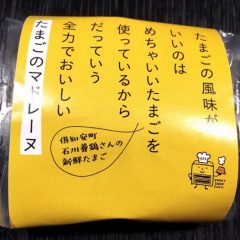 たまごの風味が
いいのは
めちゃいいたまごを
使っているから
だっていう
全力でおいしい
たまごのマドレーヌ
倶知安町
石川養鶏さんの
新鮮たまご